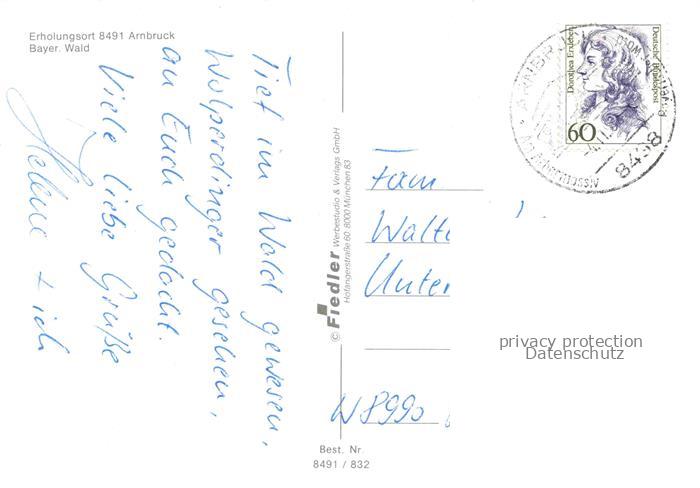 Erholungsort 8491 Arnbruck
Bayer. Wald
Tief im Wald gewesen,
Wolperdinger gesehen,
an Euch gedacht.
Viele liebe Grüße
Helene + ich
© Fiedler Werbestudio & Verlags GmbH
Hofangerstraße 60 8000 München 83
Best. Nr.
8491 / 832
Dorothea Erxleben
Deutsche Bundespost
60
ARNBRUCK
8498
Fam
Walte
Unter
W 8990
privacy protection
Datenschutz